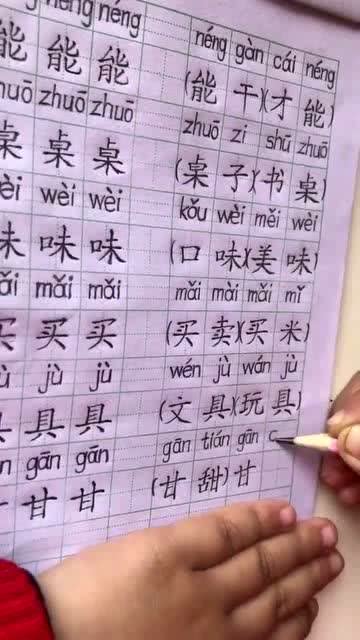 néng néng néng gàn cái néng
能 能 能 (能 干)(才 能)
zhuō zhuō zhuō zhuō zi shū zhuō
桌 桌 桌 (桌 子)(书 桌)
wèi wèi wèi kǒu wèi měi wèi
味 味 味 (口 味)(美 味)
mǎi mǎi mǎi mǎi mài mǎi mǐ
买 买 买 (买 卖)(买 米)
jù jù jù wén jù wán jù
具 具 具 (文 具)(玩 具)
gān gān gān gān tián gān c
甘 甘 甘 (甘 甜)甘